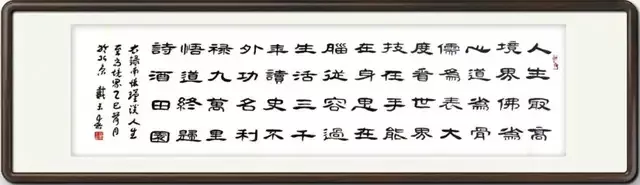 人生最高
境界佛為
心道為骨
儒為表大
度看世界
技在手能
在身思在
腦從容過
生活三千
年讀史不
外功名利
祿九萬里
悟道終歸
詩酒田園
錄南懷瑾談人生
至高境界乙巳荷月
於北京 戴玉